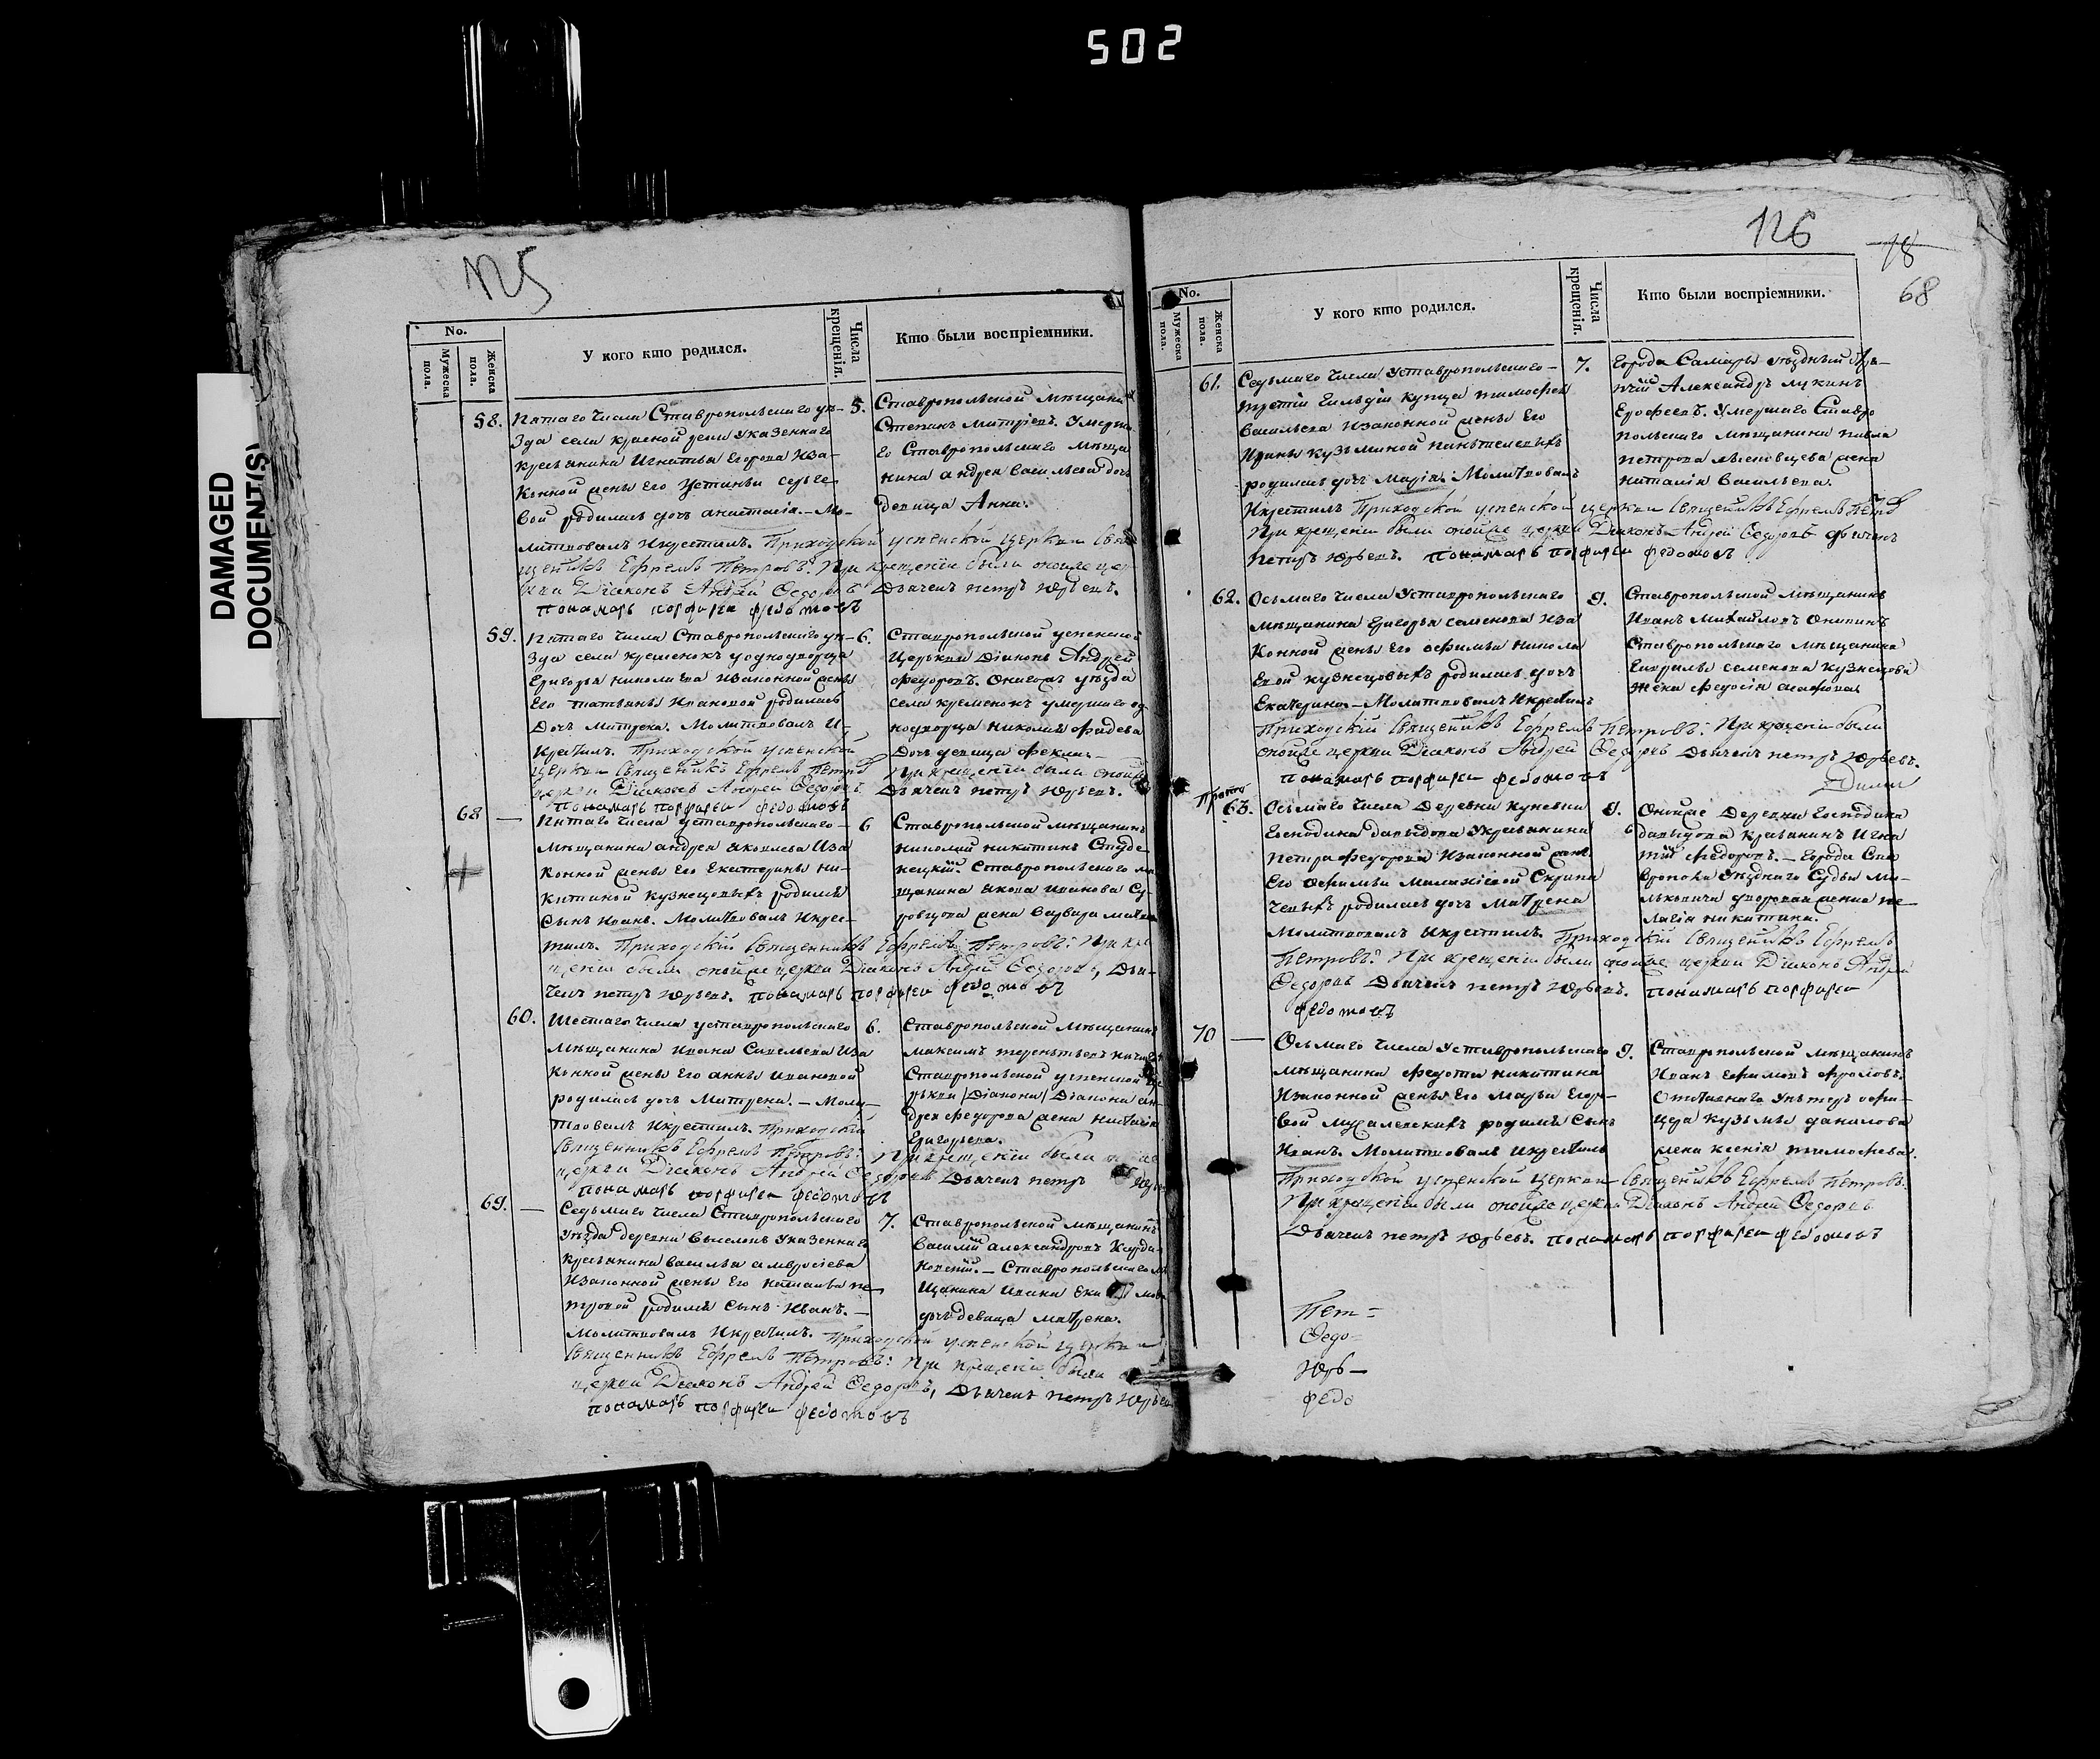 502
DAMAGED
DOCUMENT(S)
125
No.
Мужеска пола.
Женска пола.
У кого кто родился.
Числа крещенія.
Кто были воспріемники.
58.
Пятаго числа Ставропольскаго уѣ-
зда села красной реки указеннаго
крестьянина Игнатья Егорова иза-
конной жены его Устиньи сергѣе
вой родилась дочь анастасія. — Мо-
литвовалъ икрестилъ. Приходской успенской церкви Свя
щенникъ Ефремъ Петровъ: При крещеніи были оной же цер
кви Діаконъ Андрей Федоровъ Дьячекъ петръ Юрьевъ.
понамарь порфирей федотовъ
5.
Ставропольской мѣщанин
Степанъ митріевъ. Умерша
го Ставропольскаго мѣща
нина андрея васильева дочь
девица Анна.
59.
Пятаго числа Ставропольскаго уѣ-
зда села кременокъ уоднодворца
Григорья николаева изаконной жены
Его татьяны Ивановой родилась
Дочь матрена. Молитвовалъ и-
крестилъ. Приходской успенской
церкви Священникъ Ефремъ Петровъ При крещеніи были оной же
церкви Діаконъ Андрей Федоровъ Дьячекъ петръ Юрьевъ.
понамарь порфирей федотовъ
6.
Ставропольской успенской
Церькви Діаконъ Андрей
Федоровъ. Оногожъ уѣзда
села кременокъ умершаго од
нодворца николая фадеева
Дочь девица фекла.
68
Пятаго числа уставропольскаго
Мѣщанина андрея яковлева иза
конной жены его Екатерины ни-
китиной кузнецовыхъ родился
Сынъ иванъ. Молитвовалъ икрес-
тилъ. Приходскій Священникъ Ефремъ Петровъ: При кре
щеніи были оной же церкви Діаконъ Андрей Федоровъ, Дья-
чекъ петръ Юрьевъ. понамарь порфирей федотовъ
6
Ставропольской мѣщанинъ
николай никитинъ Студе
нецкій. Ставропольскаго мѣ
щанина якова иванова Су-
ровцова жена варвара
60.
Шестаго числа уставропольскаго
Мѣщанина ивана Савельева иза
конной жены его анны ивановой
родилась дочь Матрена. — Моли-
твовалъ икрестилъ. Приходскій
Священникъ Ефремъ Петровъ: При крещеніи были
церкви Діаконъ Андрей Федоровъ Дьячекъ петръ
понамарь порфирей федотовъ
6.
Ставропольской мѣщанинъ
максимъ терентьевъ
Ставропольской успенской це
рькви /Діакона/ Діакона ан
дрея федорова жена наталія
Григорьева.
69.
Седьмаго числа Ставропольскаго
уѣзда деревни выселокъ указеннаго
крестьянина василья амвросіева
изаконной жены его натальи пе
тровой родился сынъ иванъ. —
молитвовалъ икрестилъ. Приходской успенской церкви
Священникъ Ефремъ Петровъ: При крещеніи были
церкви Діаконъ Андрей Федоровъ, Дьячекъ петръ Юрьевъ
понамарь порфирей федотовъ
7.
Ставропольской мѣщанинъ
василій александровъ
Ставропольскаго мѣ
щанина ивана
дочь девица матрена.
126
78
68
No.
Мужеска пола.
Женска пола.
У кого кто родился.
Числа крещенія.
Кто были воспріемники.
61.
Седьмаго числа уставропольскаго
третій гильдіи купца тимофея
васильева изаконной жены его
Ирины кузьминой пантелеевыхъ
родилась дочь марія. Молитвовалъ
икрестилъ Приходской успенской церкви Священникъ Ефремъ Петровъ
При крещеніи были оной же церкви Діаконъ Андрей Федоровъ дьячекъ
петръ Юрьевъ. понамарь порфирей федотовъ
7.
Города Самары уѣздный стря-
пчій Александръ лукинъ
Ерофеевъ. Умершаго Ставро
польскаго мѣщанина павла
петрова жена
наталія васильева.
62.
Осьмаго числа уставропольскаго
мѣщанина Григорья семенова иза
конной жены его афимьи никола
евой кузнецовыхъ родилась дочь
Екатерина — Молитвовалъ икрестилъ
Приходскій Священникъ Ефремъ Петровъ: При крещеніи были
оной же церкви Діаконъ Андрей Федоровъ Дьячекъ петръ Юрьевъ.
понамарь порфирей федотовъ
9.
Ставропольской мѣщанинъ
Иванъ михайловъ
Ставропольскаго мѣщанина
Гаврилы семенова кузнецова
жена федосія
63.
Осьмаго числа Деревни куневки
Господина давыдова укрестьянина
петра федорова изаконной жены
Его афимьи
родилась дочь матрена
молитвовалъ икрестилъ. Приходскій Священникъ Ефремъ
Петровъ: При крещеніи были оной же церкви Діаконъ Андрей
Федоровъ Дьячекъ петръ Юрьевъ. понамарь порфирей
федотовъ
9.
Оной же Деревни Господина
давыдова крестьянинъ Игна
тій федоровъ. — Города Ста
врополя уѣзднаго Судьи ми-
льковича дворовая женка пе
лагія никитина.
70
Осьмаго числа уставропольскаго
мѣщанина федота никитина
изаконной жены его марьи Егор-
вой родился сынъ
Иванъ. Молитвовалъ икрестилъ
Приходской успенской церкви Священникъ Ефремъ Петровъ.
При крещеніи были оной же церкви Діаконъ Андрей Федоровъ
Дьячекъ петръ Юрьевъ. понамарь порфирей федотовъ
9.
Ставропольской мѣщанинъ
Иванъ Ефимовъ фроловъ.
Отставнаго унтеръ офи-
цера кузьмы данилова
жена ксенія тимофеева.
Пет=
Федо=
Юрь—
федо